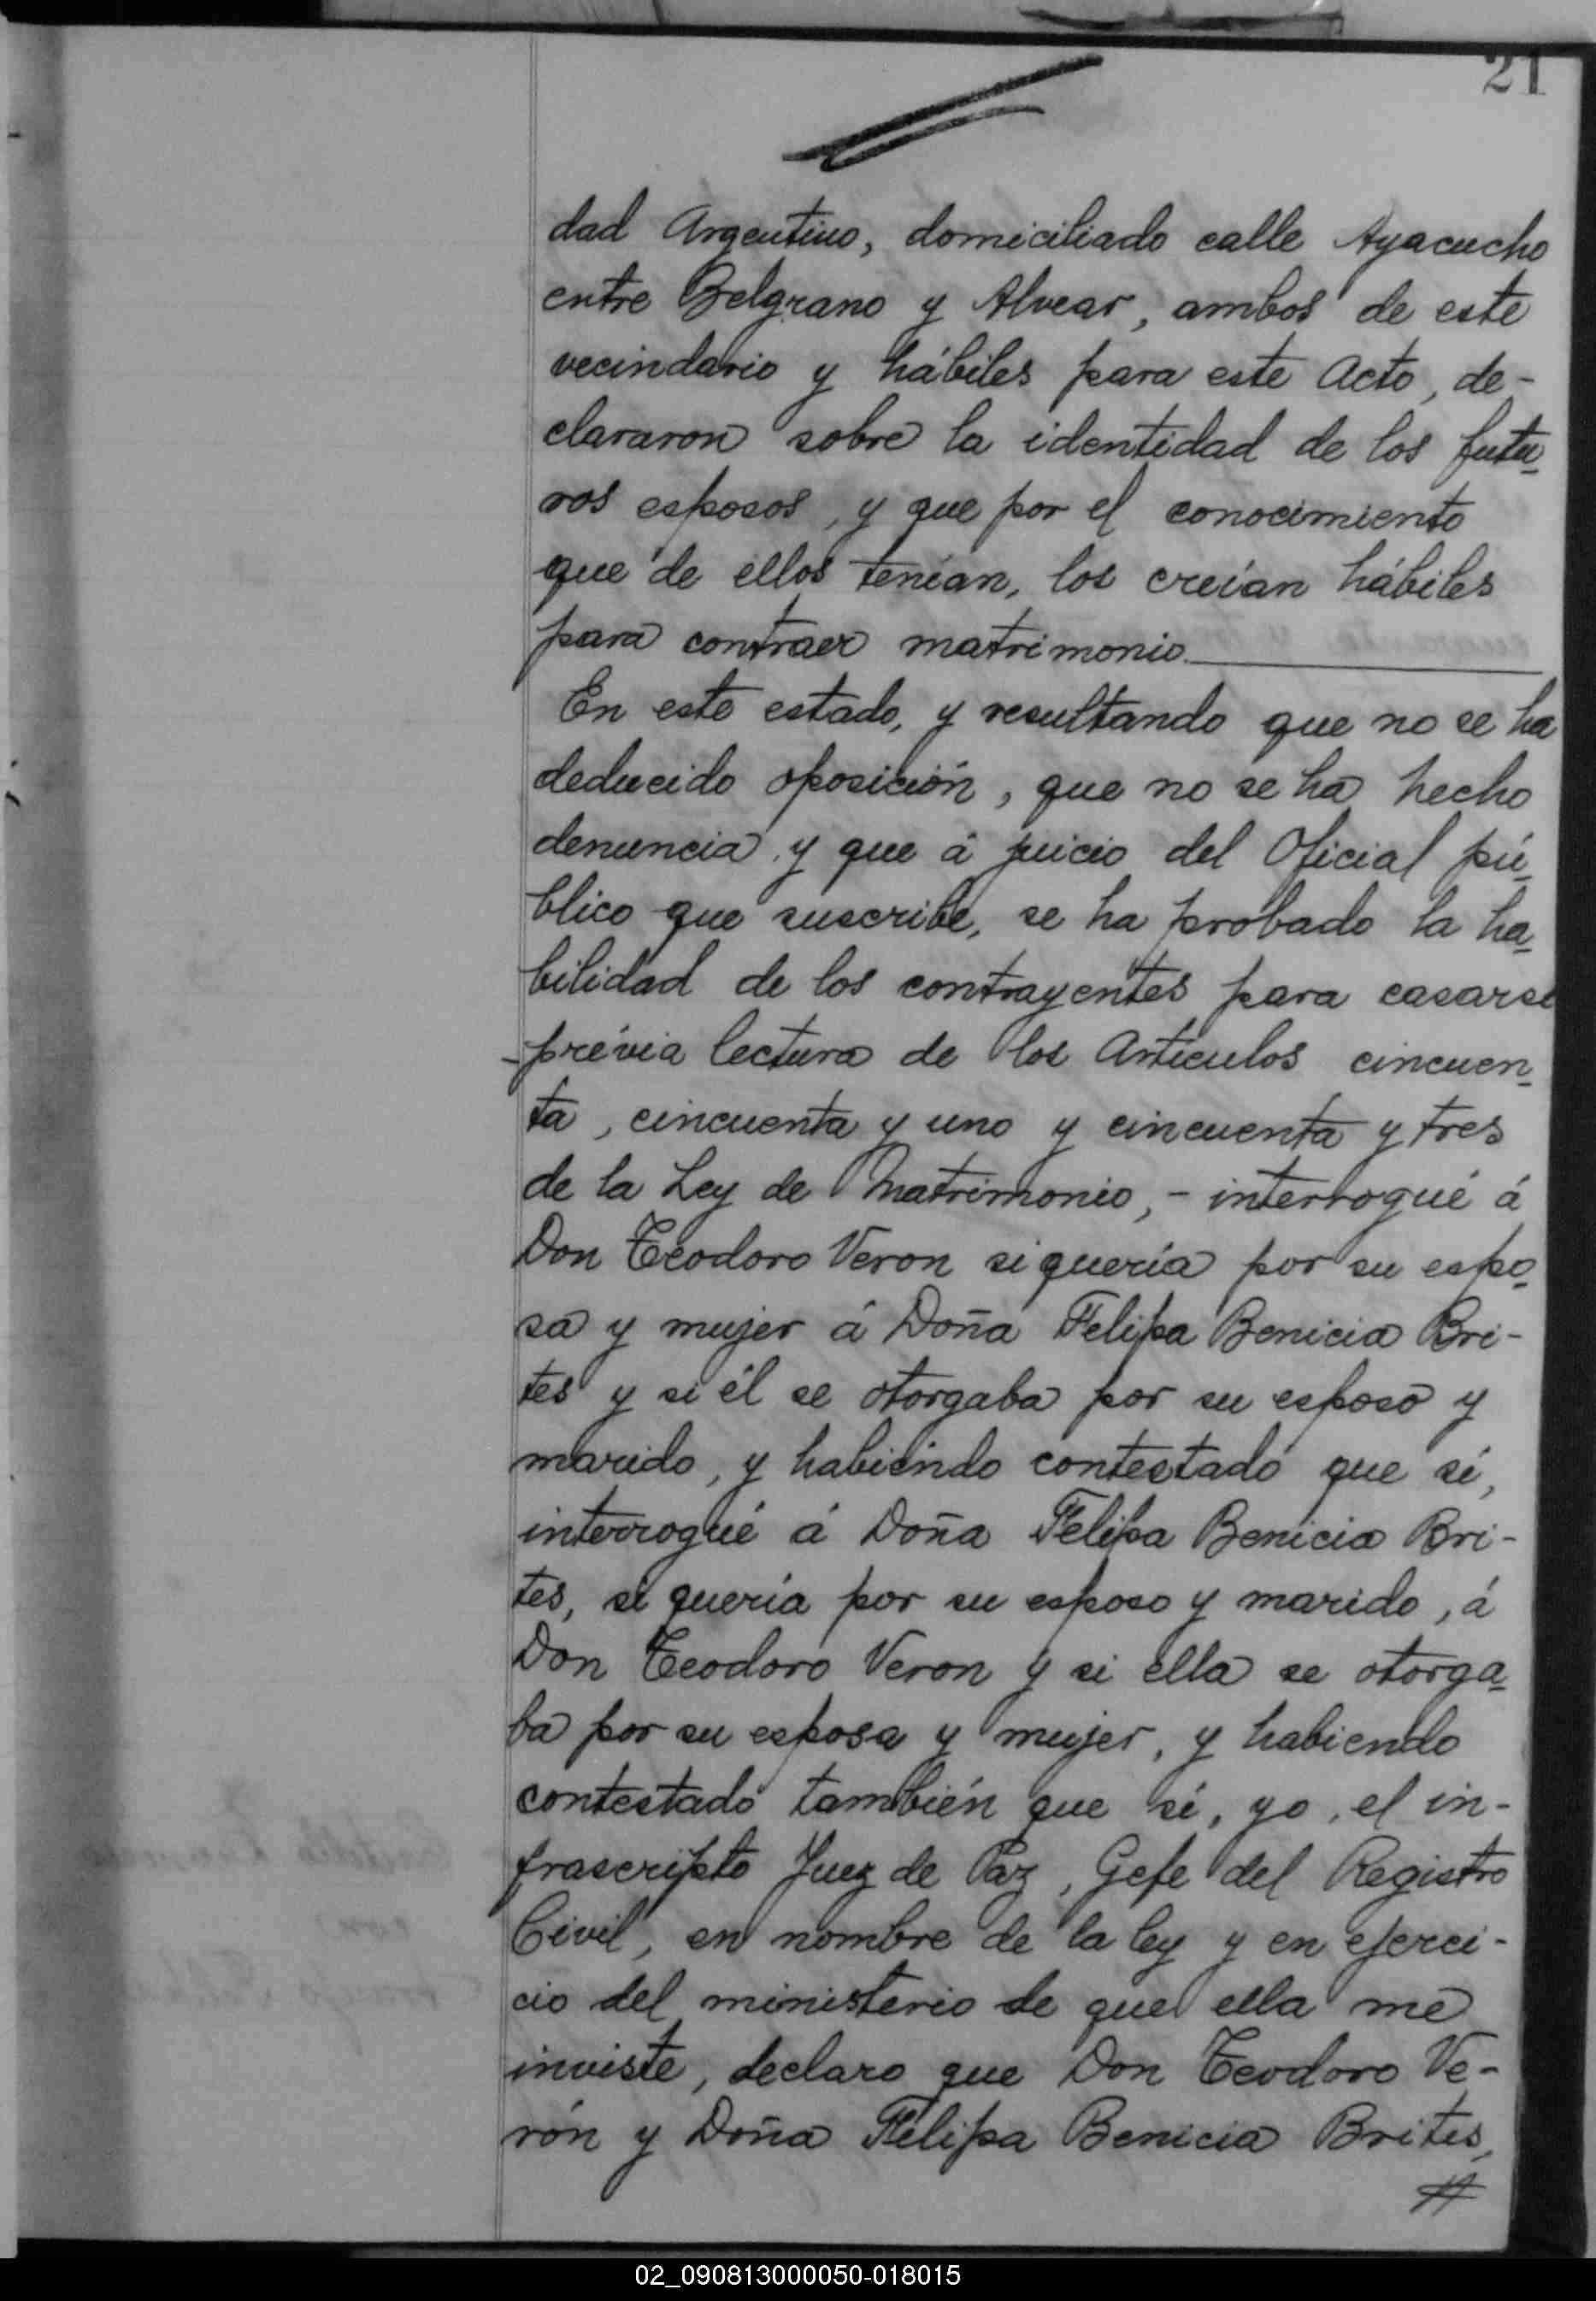 21
dad Argentino, domiciliado calle Ayacucho
entre Belgrano y Alvear, ambos de este
vecindario y hábiles para este Acto, de-
clararon sobre la identidad de los futu-
ros esposos, y que por el conocimiento
que de ellos tenían, los creían hábiles
para contraer matrimonio.
En este estado, y resultando que no se ha
deducido oposición, que no se ha hecho
denuncia y que á juicio del Oficial pú-
blico que suscribe, se ha probado la ha-
bilidad de los contrayentes para casarse
prévia lectura de los Artículos cincuen-
ta, cincuenta y uno y cincuenta y tres
de la Ley de Matrimonio, - interrogué á
Don Teodoro Veron si quería por su espo-
sa y mujer á Doña Felipa Benicia Bri-
tes y si él se otorgaba por su esposo y
marido, y habiéndo contestado que sí,
interrogué á Doña Felipa Benicia Bri-
tes, si quería por su esposo y marido, á
Don Teodoro Veron y si ella se otorga-
ba por su esposa y mujer, y habiendo
contestado también que sí, yo, el in-
frascripto Juez de Paz, Gefe del Registro
Civil, en nombre de la ley y en ejerci-
cio del ministerio de que ella me
inviste, declaro que Don Teodoro Ve-
rón y Doña Felipa Benicia Brites,
02_090813000050-018015